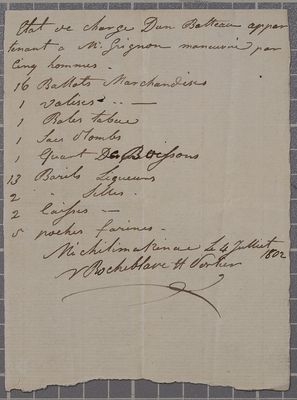 Etat de charge Dun Batteau appar
tenant a Mr. Grignon manuvré par
Cinq hommes.
16 Ballots Marchandises
1 valises
1 Bales tabac
1 Sacs Plombs
1 Quart De Boissons
13 Barils Liqueurs
2 " Selles
2 Caisses —
5 poches farines.
Michilimakinac Le 4 Juillet
1802
Rocheblave & Porlier